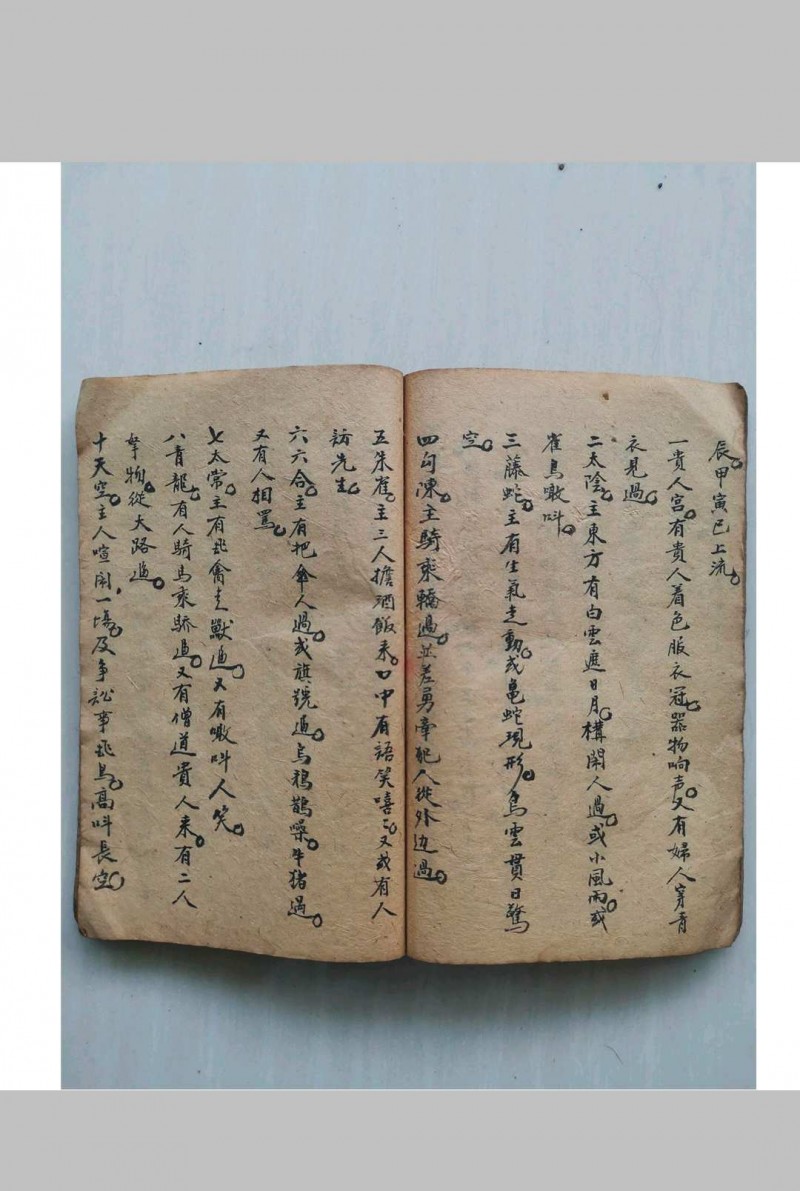 辰。甲寅巳上流。
一貴人宮。有貴人着色服衣冠。器物响声。又有婦人穿青
衣見過。
二太陰。主東方有白雲遮日月。構閑人過。或小風雨。或
雀鳥噉呌。
三藤蛇。主有生氣走動。或亀蛇現形。烏雲貫日驚
空。
四勾陳。主騎乘轎過。並差勇牽犯人從外边過。
五朱雀。主三人擔酒飯来。口中有語笑嘻〻。又或有人
訪先生。
六六合。主有把傘人過。或旗號過。烏鴉鵲噪。牛猪過。
又有人相罵。
七太常。主有飛禽走獸過。又有噉呌人笑。
八青龍。有人騎馬乘轎過。又有僧道貴人来。有二人
拿物。從大路過。
十天空。主人喧鬧一塲。及争訟事。飛鳥高呌長空。